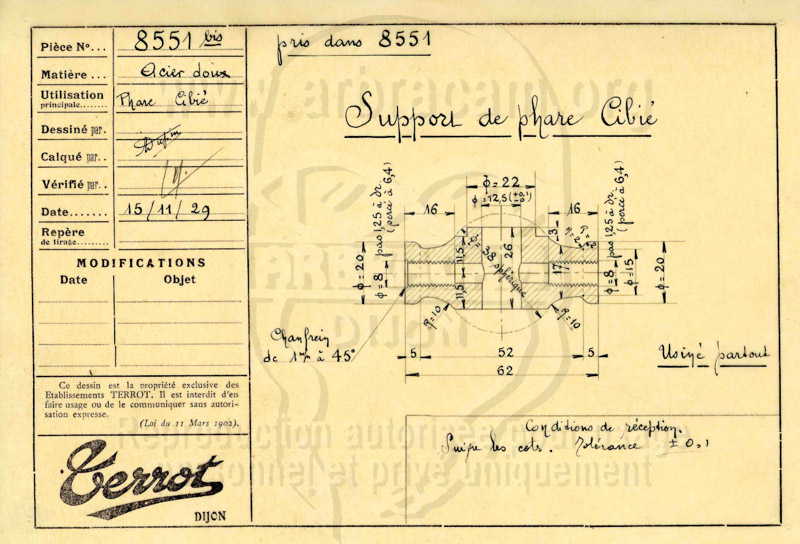 Pièce Nº... 8551 bis
Matière ... Acier doux
Utilisation
principale........ Phare Cibié
Dessiné par.
Calqué par..
Vérifié par..
Date....... 15/11/29
Repère
de tirage.......
MODIFICATIONS
Date Objet
Ce dessin est la propriété exclusive des
Etablissements TERROT. Il est interdit d'en
faire usage ou de le communiquer sans autori-
sation expresse.
(Loi du 11 Mars 1902).
Terrot
DIJON
pris dans 8551
Support de phare Cibié
ϕ = 22
ϕ = 12,5
16
16
ϕ = 20
ϕ = 8 pas 1,25 à dr.
(percé à 6,4)
11,5
11,5
38 sphérique
26
3
17
ϕ = 8 pas 1,25 à dr.
(percé à 6,4)
ϕ = 15
ϕ = 20
R = 10
R = 10
Chanfrein
de 1 à 45°
5 52 5
62
Usiné partout
Conditions de réception.
les cots. Tolérance ± 0,1
www.arbracam.org
DIJON
Reproduction autorisée
personnel et privé uniquement